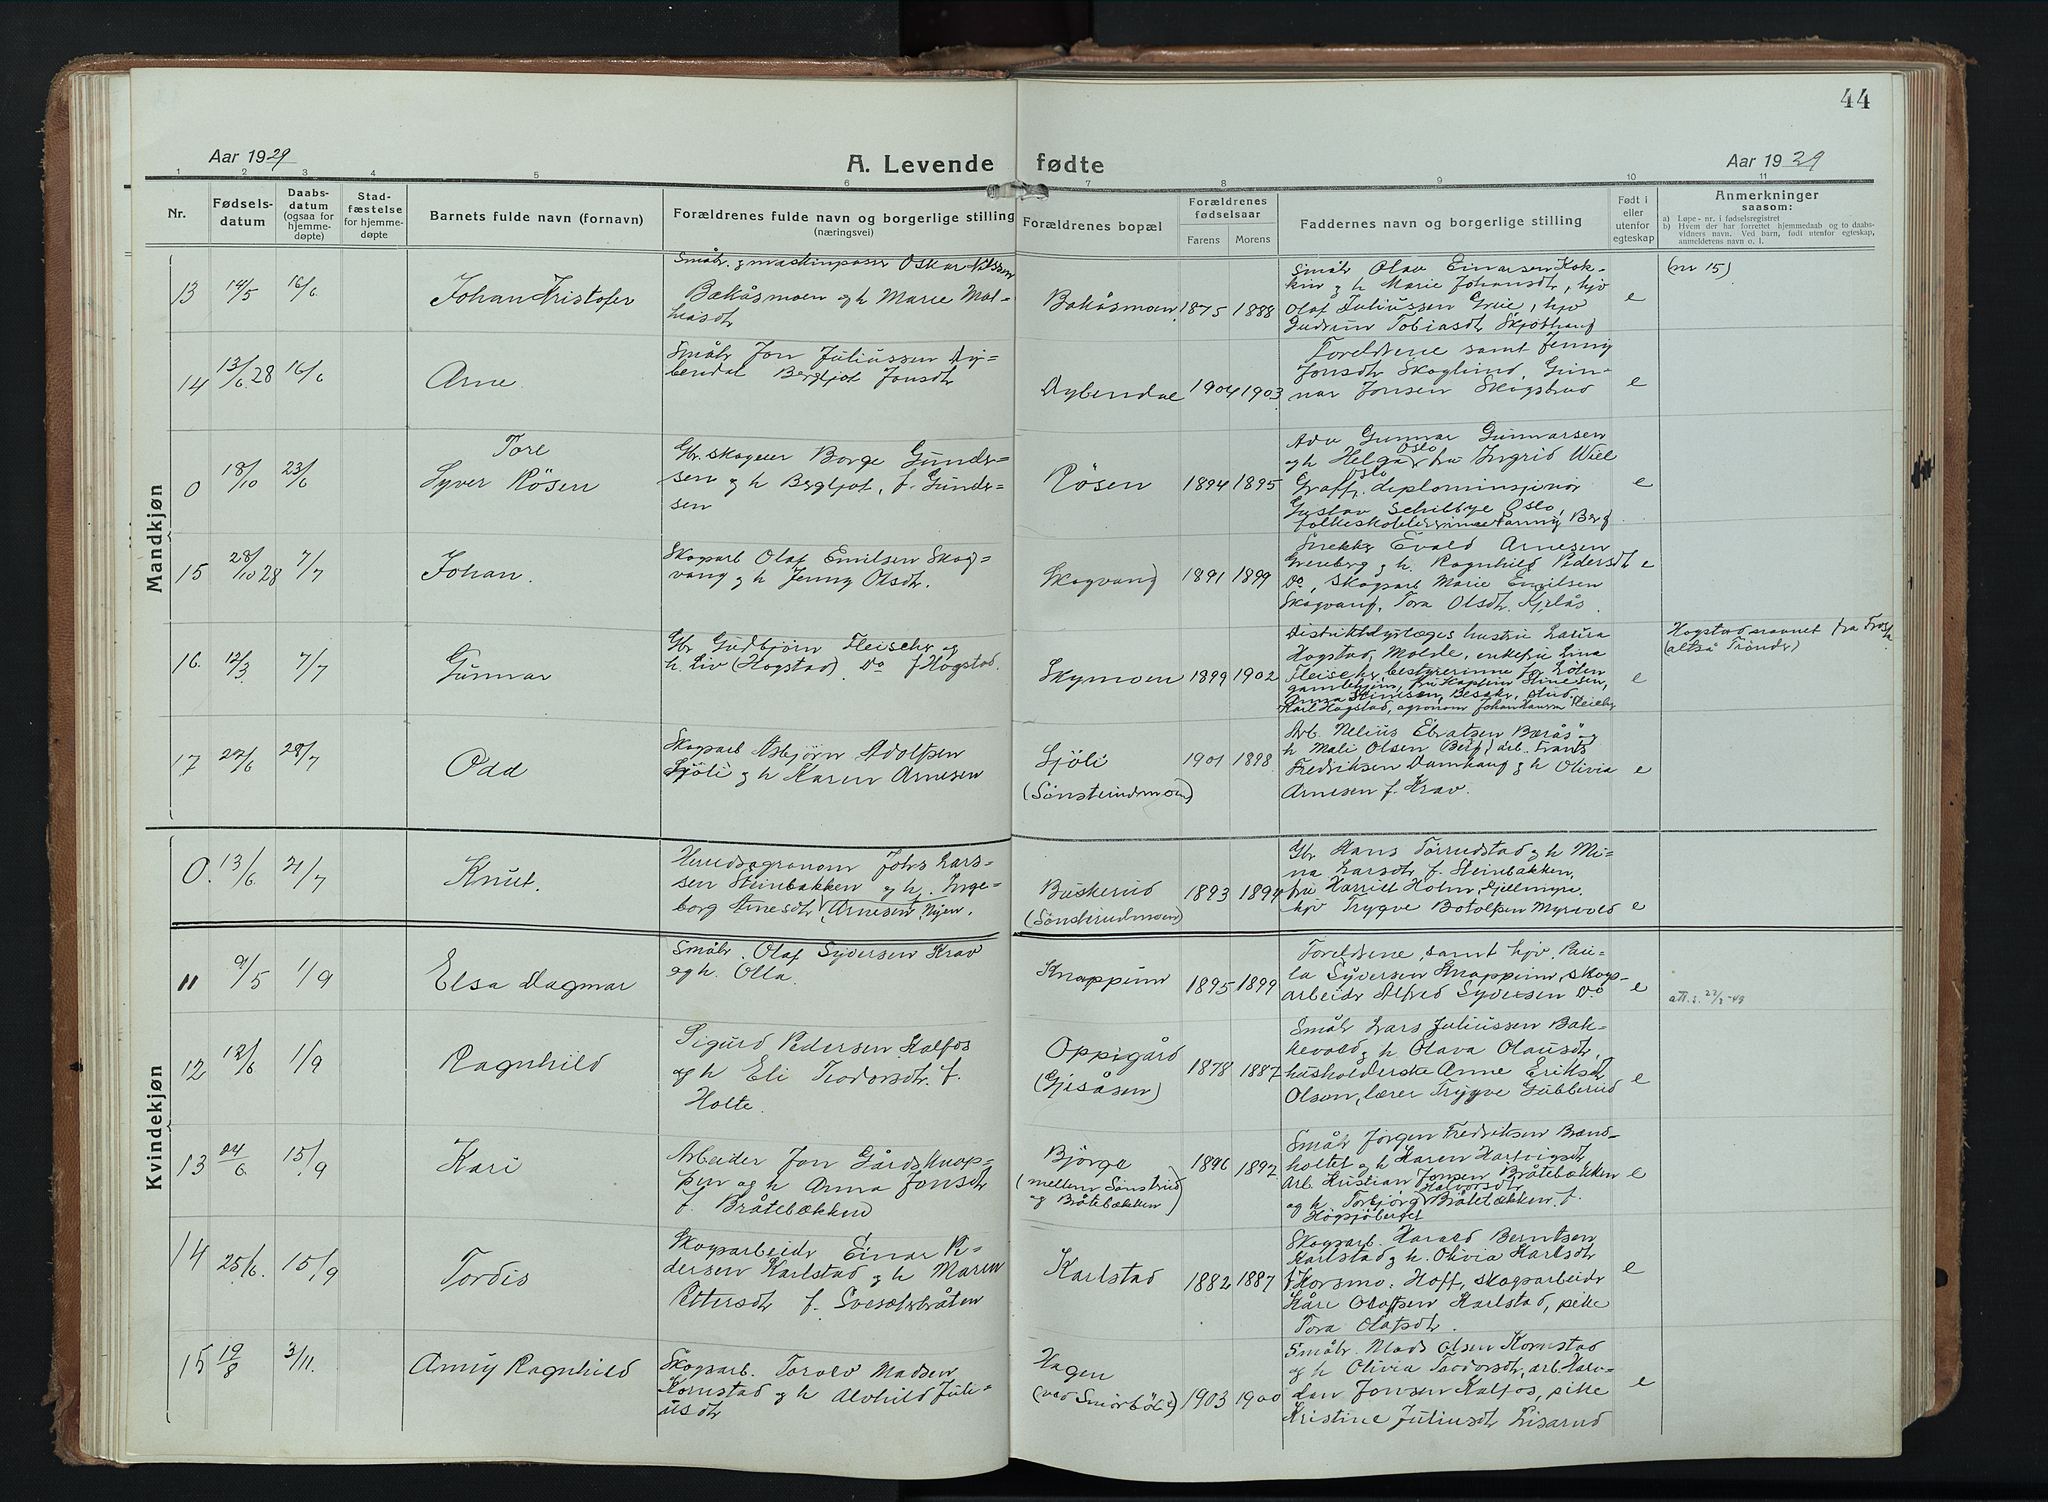 44
Aar 1929
A. Levende fødte
Aar 1929
1 2 3 4 5 6 7 8 9 10 11
Nr.
Fødsels-
datum
Daabs-
datum
(ogsaa for
hjemme-
døpte)
Stad-
fæstelse
for hjemme-
døpte
Barnets fulde navn (fornavn)
Forældrenes fulde navn og borgerlige stilling
(næringsvei)
Forældrenes bopæl
Forældrenes
fødselsaar
Farens Morens
Faddernes navn og borgerlige stilling
Født i
eller
utenfor
egteskap
Anmerkninger
saasom:
a) Løpe-nr. i fødselsregistret
b) Hvem der har forrettet hjemmedaab og to daabs-
vidners navn. Ved barn, født utenfor egteskap,
anmelderens navn o. l.
Mandkjøn
13 14/5 16/6 Johan Kristofer
Småbr. og maskinpasser Oskar Nilssen
Bækåsmoen og h Marie Mat-
hiasdtr
Bakåsmoen 1875 1888
Småbr Olav Einarsen Kok-
kin og h Marie Johansdtr, hjv
Olaf Juliussen Grue, hjv
Gudrun Tobiasdtr Skjøthaug
e
(nr 15)
14 13/6 28 16/6 Arne
Småbr Jon Juliussen Dy-
bendal Bergljot Jonsdtr
Dybendal 1904 1903
Foreldrene samt Jenny
Jonsdtr Skoglund, Gun-
nar Jonsen Skogstrud
e
0 18/10 23/6 Tore
Syver Røsen
Gbr. skogeier Borge Gunder-
sen og h Bergljot, f. Gunder-
sen
Røsen 1894 1895
Adv Gunnar Gunnarsen
og h Helga Oslo fru Ingrid Wiel
Graff, Oslo diplominsjenør
Gustav Schilbye Oslo,
folkeskolelærerinne Fanny Berg
e
15 28/10 28 7/7 Johan.
Skogsarb Olaf Emilsen Skog-
vang og h Jenny Olsdtr.
Skogvang 1891 1899
Snekker Evald Arnesen
Greneberg og h. Ragnhild Pedersdtr
Do, skogsarb Marie Emilsen
Skogvang, Tora Olsdtr. Kjelås.
e
16. 12/3 7/7 Gunnar
Gbr Gudbjørn Fleischer og
h. Liv (Hogstad) Do f Hogstad.
Skymoen 1899 1902
Distriktslyrlæges hustru Laura
Hogstad, Molde, enkefru Lina
Fleischer, bestyrerinne for Løten
gamlehjem, fru kaptein Stinesen,
Anna Stinesen, Besaker, stud.
Karl Hogstad, agronom Johan Hansen Fleischer
e
Hogstad navnet fra Frosta
(altså Trønder)
17 27/6 28/7 Odd
Skogsarb Asbjørn Adolfsen
Sjøli og h Karen Arnesen
Sjøli
(Sønsterudmoen)
1901 1898
Arb. Nelius Ebratsen Bærås og
h Mali Olsen (Berg) arb. Frants
Fredriksen Damhaug og h Olivia
Arnesen f. Krav.
e
0. 13/6 21/7 Knut.
Herredsagronom Johs Lars-
sen Steinbakken og h. Inge-
borg Arnesdtr Arnesen Nyen.
Buskerud
(Sønsterudmoen)
1893 1894
Gbr Hans Tørrudstad og h Mi-
na Larsdtr f. Steinbakken,
fru Harriet Holm, Gjellmyre,
hjv Trygve Botolfsen Myrvold
e
Kvindekjøn
11 9/5 1/9 Elsa Dagmar
Småbr. Olaf Syversen Krav
og h. Olla.
Knappum 1895 1899
Foreldrene, samt hjv. Pau-
la Syversen Knappum, skogs-
arbeider Alfred Syversen Do
e
att. s. 22/3-49
12 12/6 1/9 Ragnhild
Sigurd Pedersen Kalfos
og h Eli Teodorsdtr. f.
Holte.
Oppigård
(Gjesåsen)
1878 1887
Småbr Lars Juliussen Bak-
kevold og h Olava Olausdtr,
husholderske Anne Eriksdtr
Olsen, lærer Trygve Gubberud
e
13 24/6 15/9 Kari
Arbeider Jon Gårdsknap-
pen og h Anna Jonsdtr
f. Bråtebækken
Bjørge
(mellem Sønsterud
og Bråtebækken)
1896 1892
Småbr Jørgen Fredriksen Brænd-
holtet og h Karen Hartvigsdtr
Arb. Kristian Jonsen Bråtebækken
og h. Torbjørg Halvorsdtr Bråtebækken f.
Høgsjøberget
e
14 25/6. 15/9 Tordis
Skogsarbeider Einar Pe-
dersen Karlstad og h Maren
Pettersdtr f. Svesæterbråten
Karlstad 1882 1887
Skogsarb. Harald Berntsen
Karlstad og h. Olivia Karlsdtr
f. Korsmo. Hoff, skogsarbeider
Kåre Olafsen Karlstad, pike
Tora Olafsdtr.
e
15 19/8 3/11. Anny Ragnhild
Skogsarb. Torolv Madsen
Kornstad og h Alvhild Juli-
usdtr
Hagen
(ved Smörböle)
1903 1900
Småbr. Mads Olsen Kornstad
og h Olivia Teodorsdtr, arb. Halv-
dan Jonsen Kalfos, pike
Kristine Juliusdtr Lisarud
e